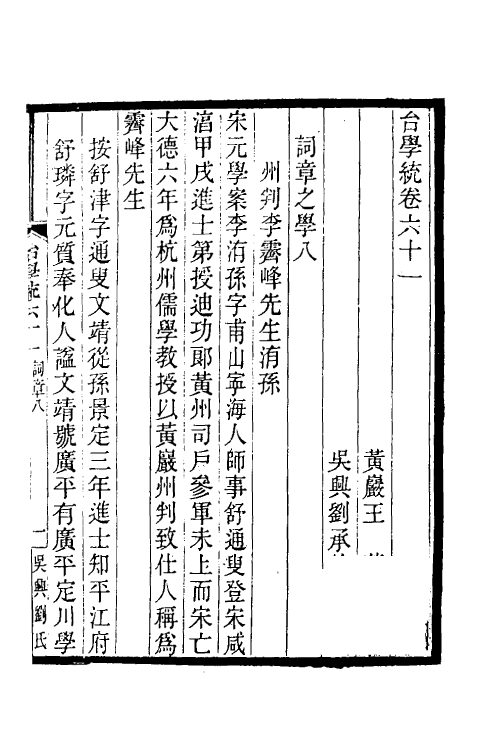 台學統卷六十一
黃巖王
吳興劉承
詞章之學八
州判李霽峰先生洧孫
宋元學案李洧孫字甫山寧海人師事舒通叟登宋咸
淳甲戌進士第授迪功郎黃州司戶參軍未上而宋亡
大德六年爲杭州儒學教授以黃巖州判致仕人稱爲
霽峰先生
按舒津字通叟文靖從孫景定三年進士知平江府
舒璘字元質奉化人謚文靖號廣平有廣平定川學
台學統六十一 詞章八 一 吳興劉氏